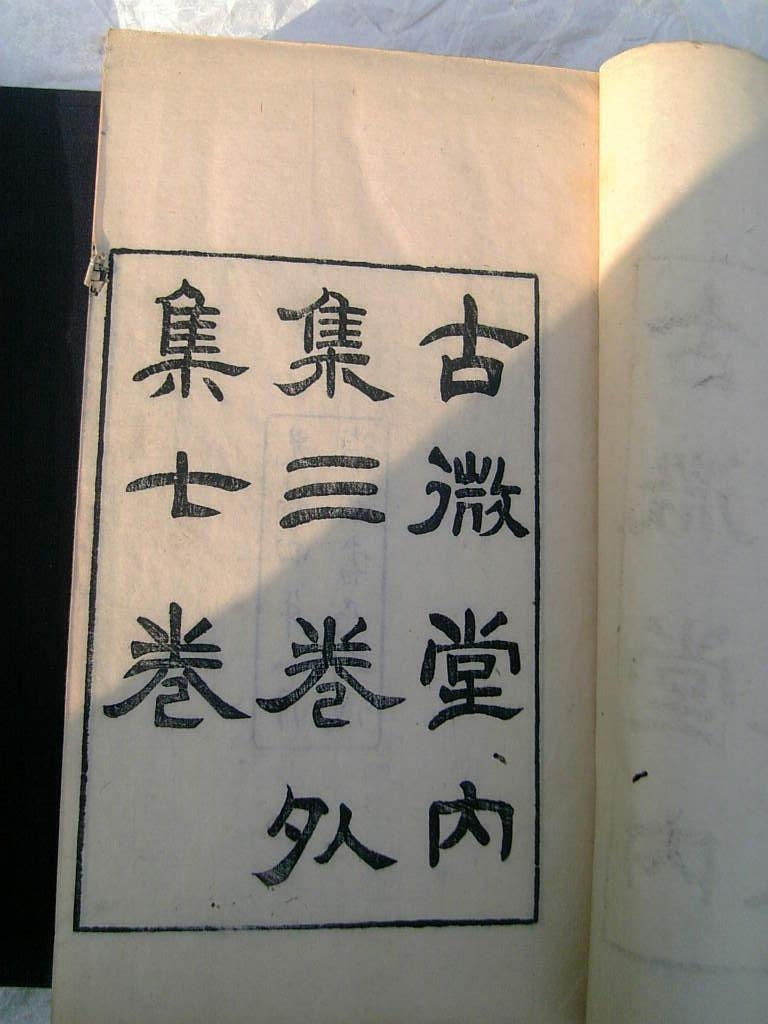 古微堂内
集三卷外
集七卷